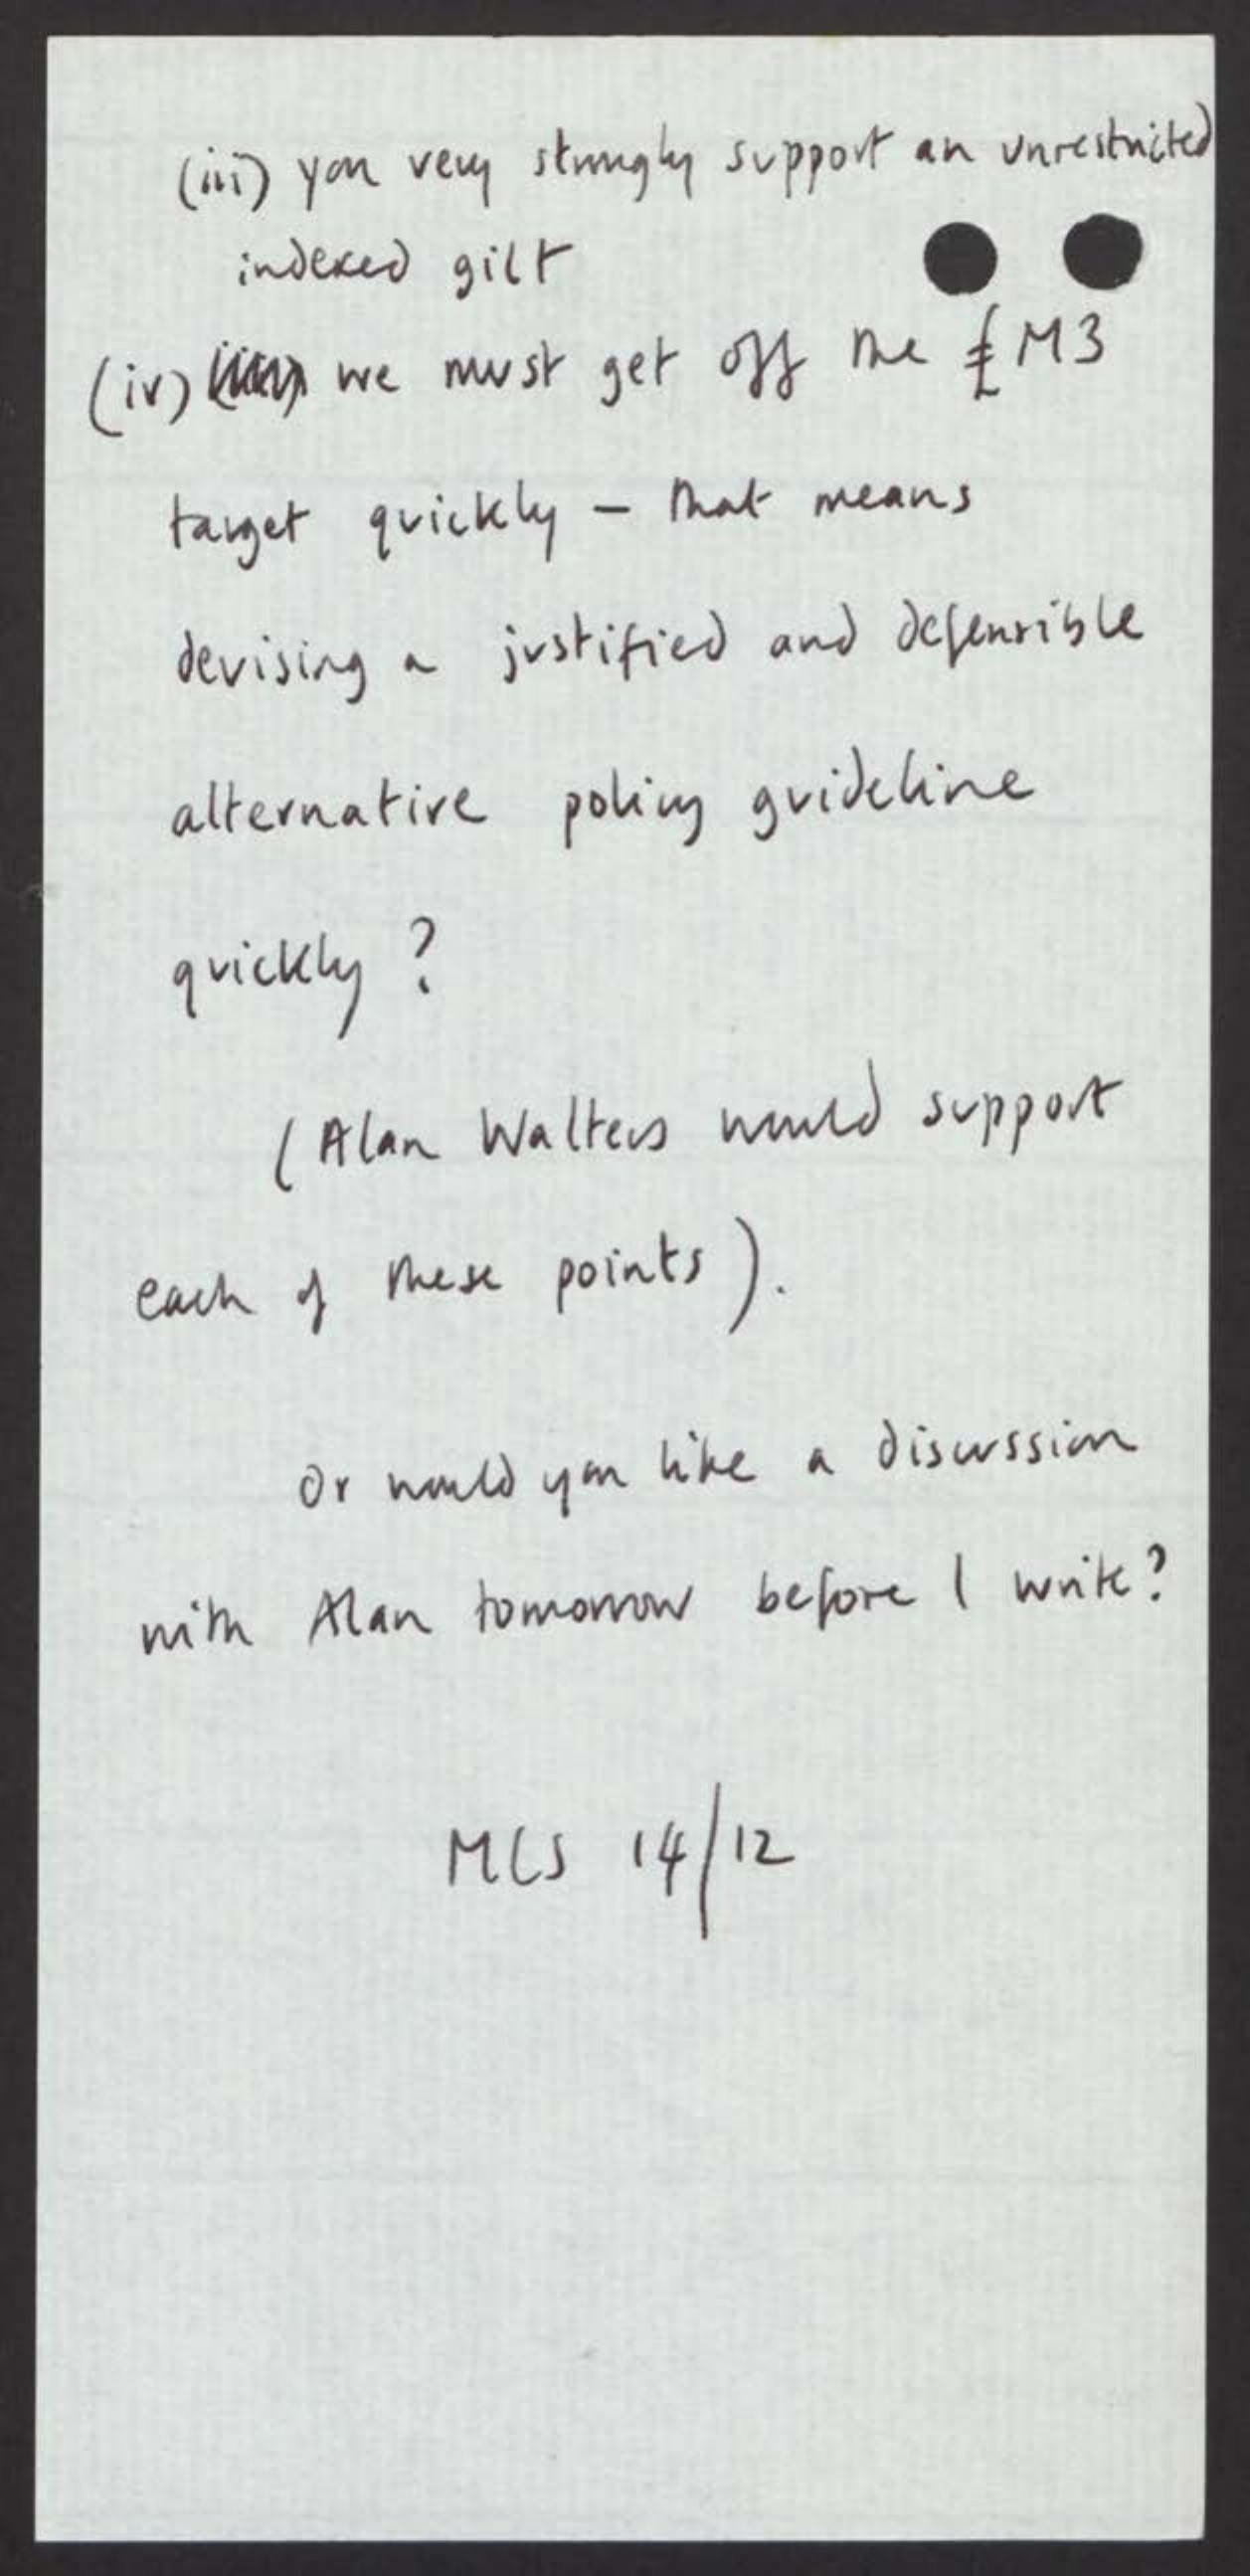 (iii) you very strongly support an unrestricted
indexed gilt
(iv) we must get off the £M3
target quickly – that means
devising a justified and defensible
alternative policy guideline
quickly?
(Alan Walters would support
each of these points).
Or would you like a discussion
with Alan tomorrow before I write?
MCS 14/12